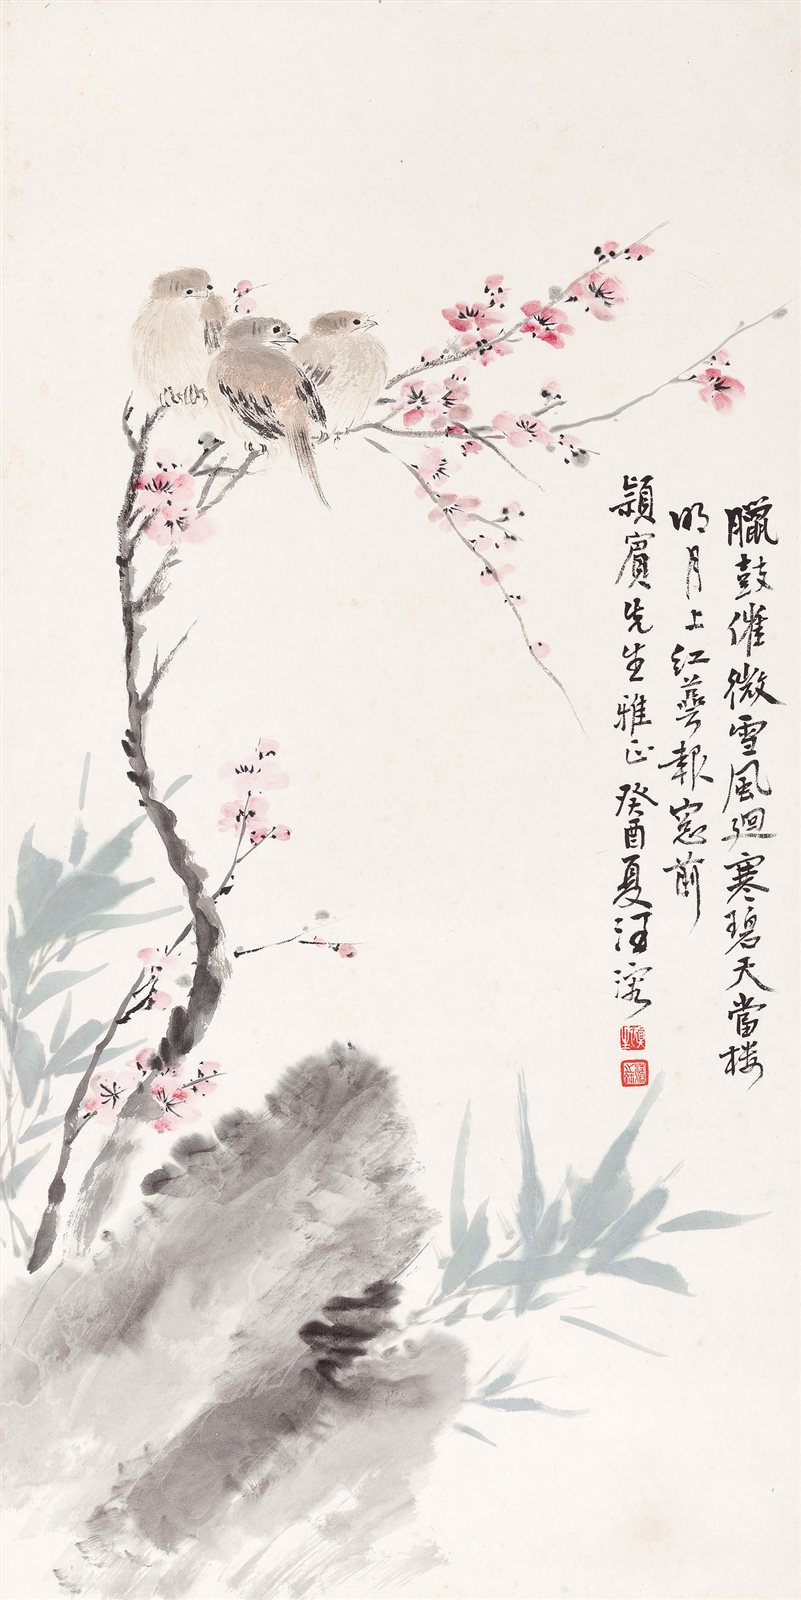 臘鼓催微雪風迴寒碧天當楼
明月上紅萼報窓前
穎賓先生雅正癸酉夏汪溶